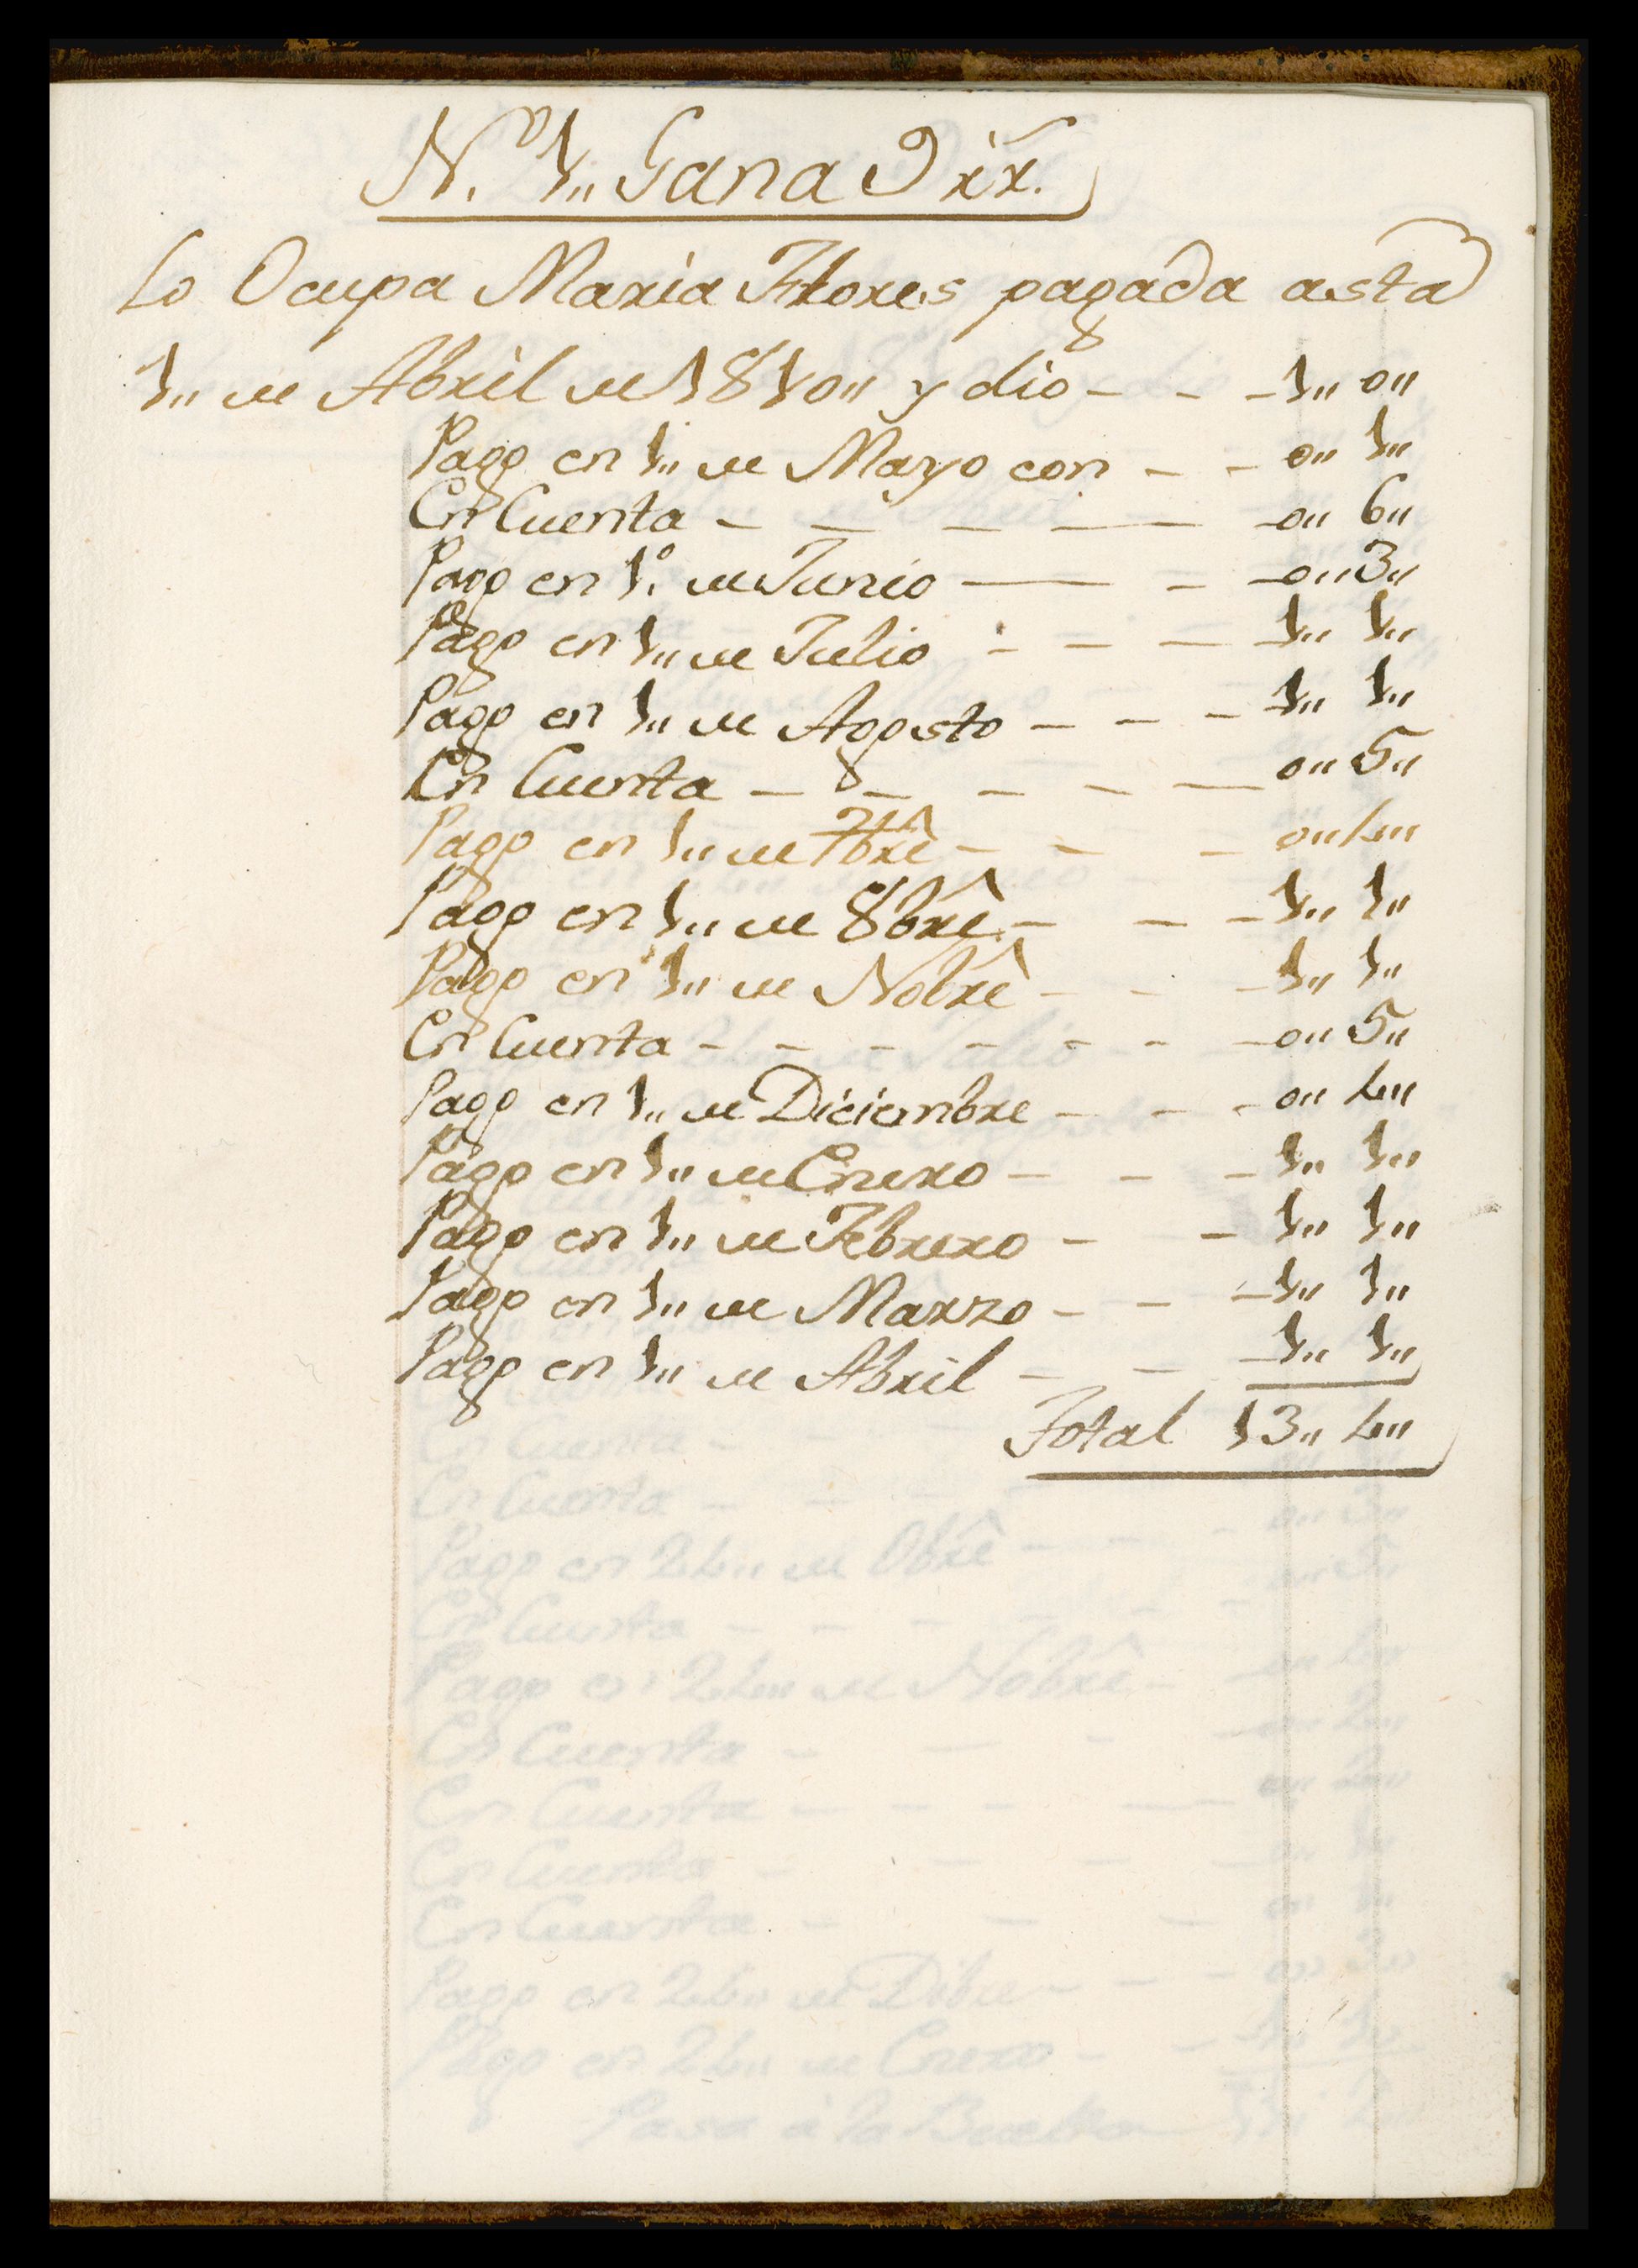 N.º 1,, Gana 9 rr.
Lo Ocupa Maria Flores pagada asta
1,, de Abril de 1810,, y dio - - - 1,, 0,,
Pago en 1,, de Mayo con - - 0,, 1,,
En Cuenta - - - - 0,, 6,,
Pago en 1.º de Junio - - 0,, 3,,
Pago en 1,, de Julio - - - 1,, 1,,
Pago en 1,, de Agosto - - - 1,, 1,,
En Cuenta - - - - - 0,, 5,,
Pago en 1,, de 7brê - - - 0,, 4,,
Pago en 1,, de 8brê - - - 1,, 1,,
Pago en 1,, de Nobrê - - - 1,, 1,,
En Cuenta - - - - - - - 0,, 5,,
Pago en 1,, de Diciembre - - - 0,, 4,,
Pago en 1,, de Enero - - - 1,, 1,,
Pago en 1,, de Febrero - - 1,, 1,,
Pago en 1,, de Marzo - - - 1,, 1,,
Pago en 1,, de Abril - - - 1,, 1,,
Total 13,, 4,,